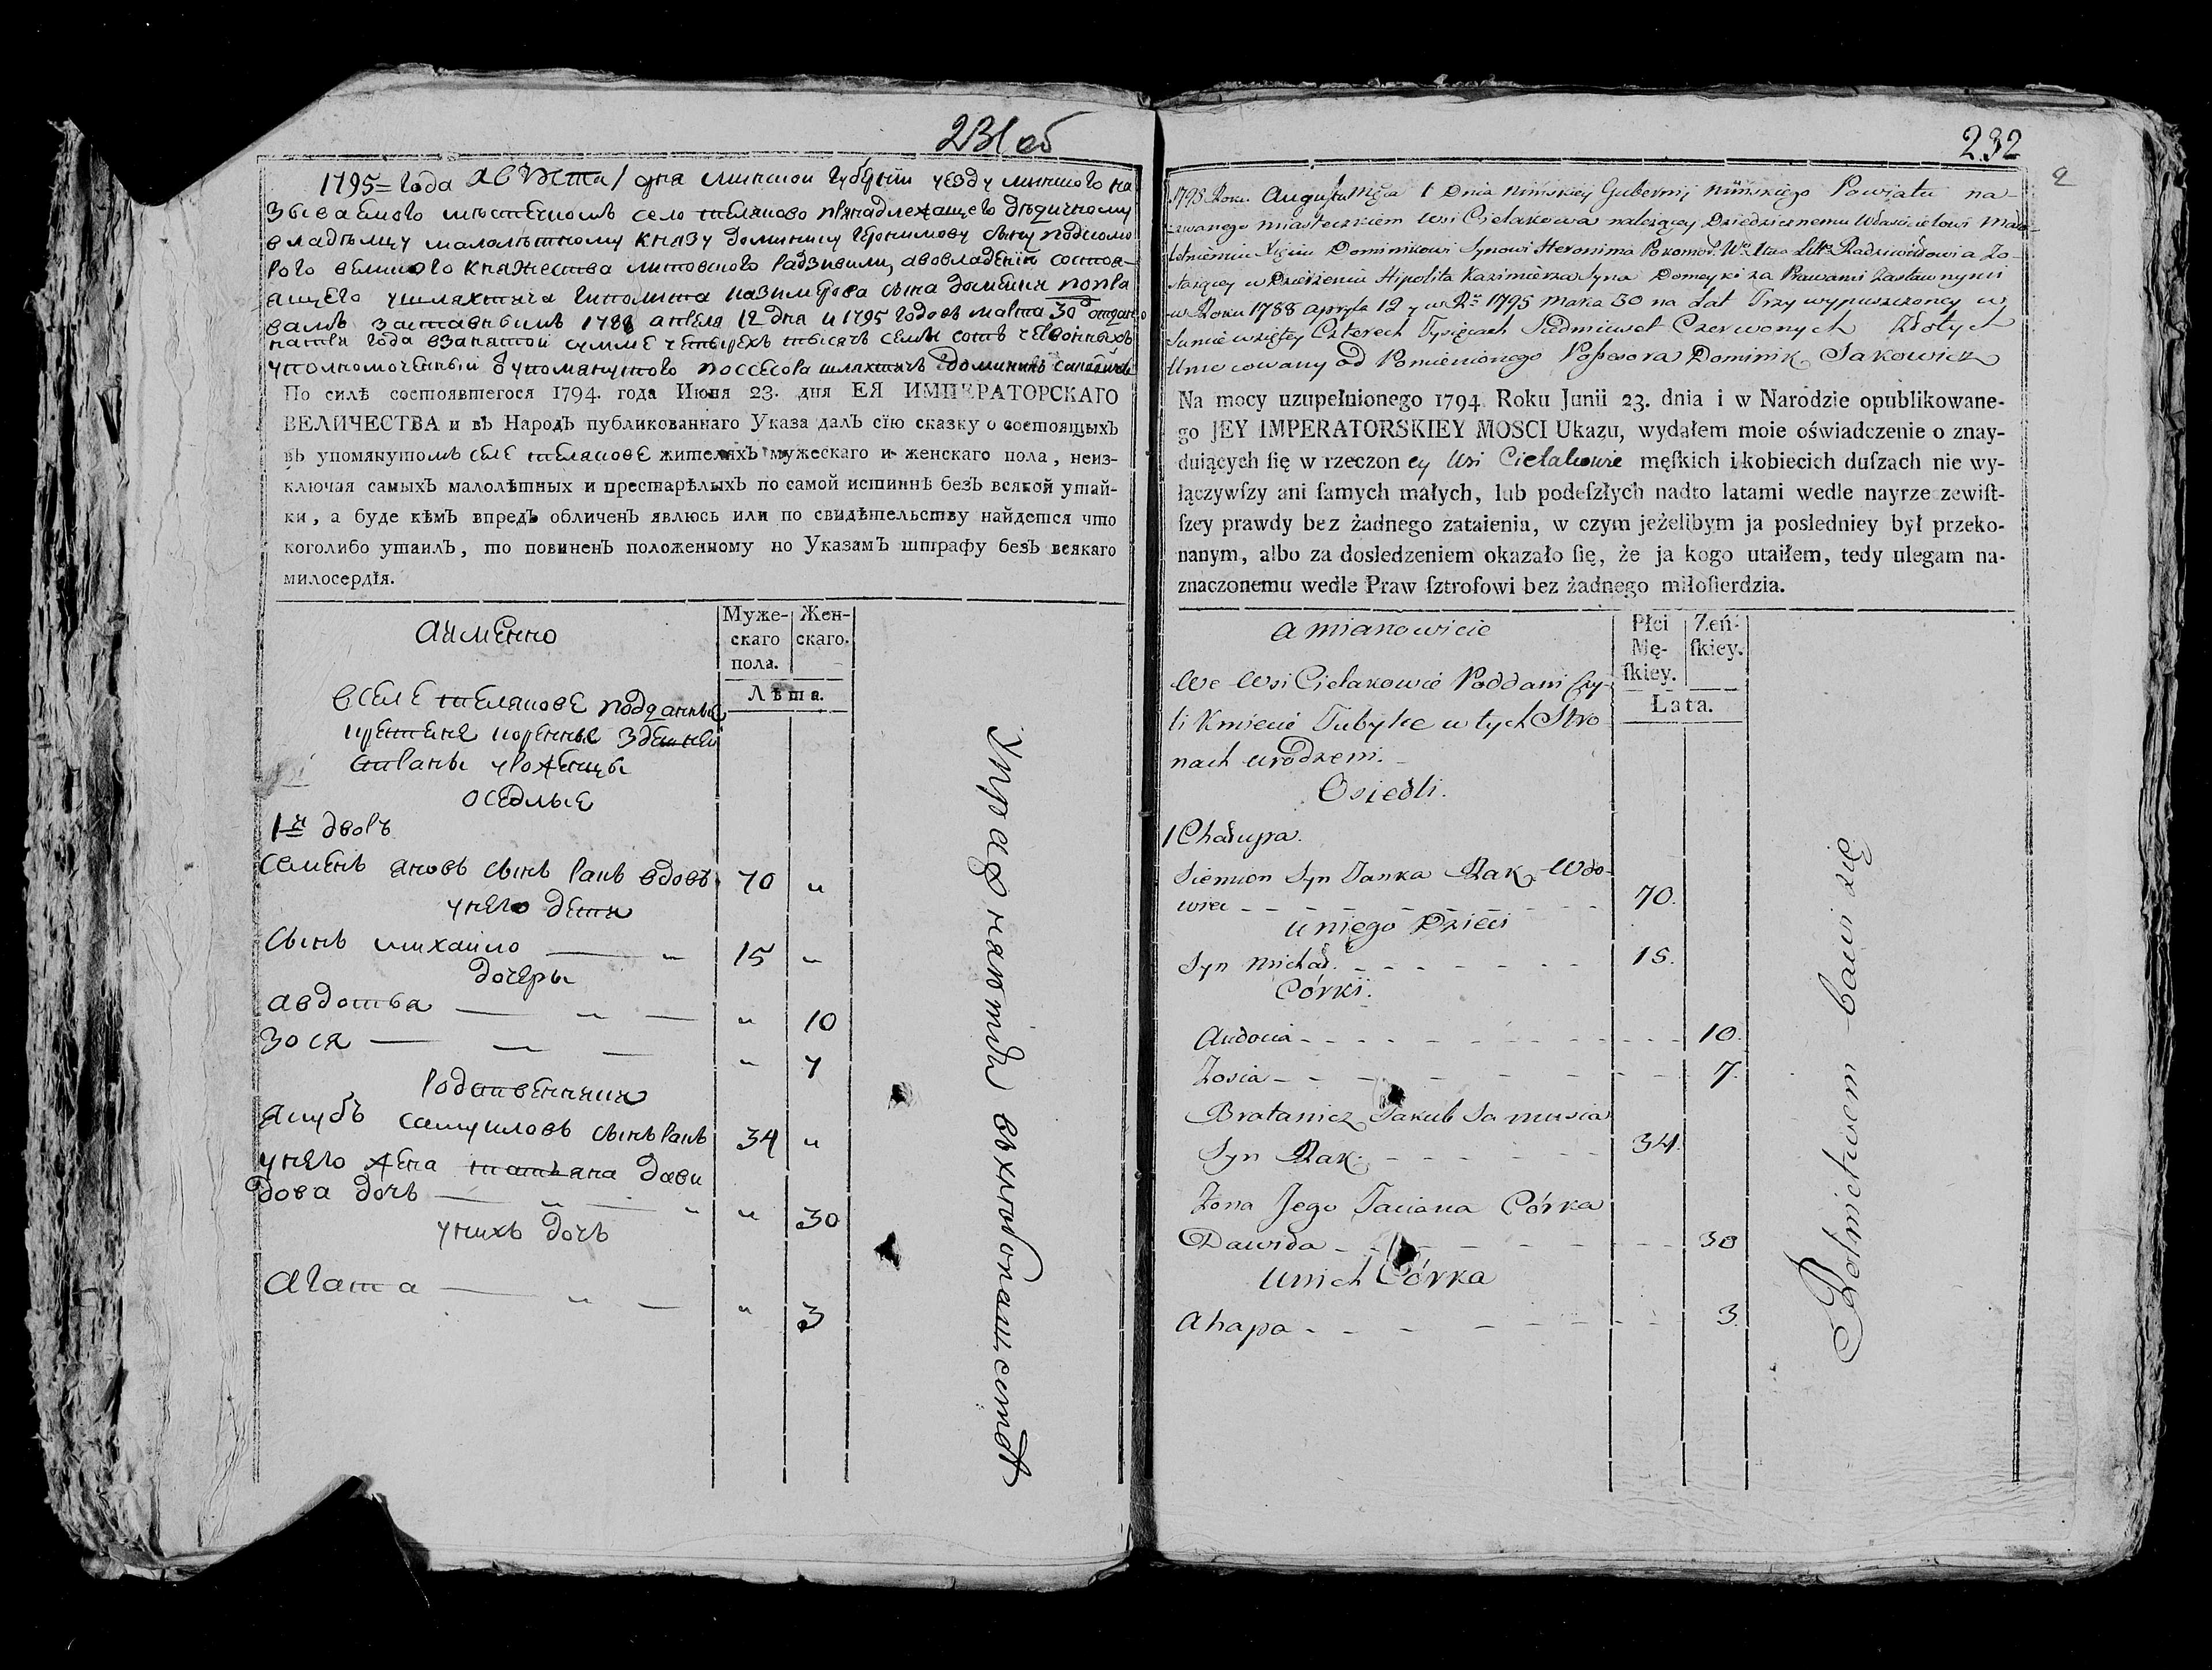 231 об
1795 = года августа 1 дня минской губернии уезду минского на
зываемого местечкомъ село теляково принадлежащего дедичному
владельцу малолетному князу доминику геронимову сыну подкомо
рого великого княжества литовского радзивилу, а во владении состоя
ящего у шляхтича гиполита казимерова сына домейки по пра
вамъ заставнымъ 1788 апреля 12 дня и 1795 годовъ марта 30
года взанятой сумме четырехъ тысячъ семи сотъ червонныхъ
уполномоченный от упомянутого поссесора шляхтичъ доминикъ
По силѣ состоявшегося 1794. года Июня 23. дня ЕЯ ИМПЕРАТОРСКАГО
ВЕЛИЧЕСТВА и въ Народъ публикованнаго Указа далъ сїю сказку о состоящыхъ
въ упомянутомъ селе теляково жителяхъ мужескаго и женскаго пола, неиз-
ключая самыхъ малолѣтныхъ и престарѣлыхъ по самой истиннѣ безъ всякой утай-
ки, а буде кѣмъ впредь обличенъ явлюсь или по свидѣтельству найдется что
коголибо утаилъ, то повиненъ положенному по Указамъ штрафу безъ всякаго
милосердїя.
Аименно
Муже-
скаго
пола.
Жен-
скаго.
Лѣта.
вселе телякове подданные
крестяне коренные здешней
страны уроженцы
оседлые
1й дворъ
Семенъ яновъ сынъ ракъ вдовъ 70 "
унего дети
Сынъ михаило — " 15 "
дочеры
авдотья — " — " 10
Зося — " — " 7
родственники
якубъ самуиловъ сынъ ракъ 34 "
унего жена татьяна дави
дова дочъ — " — " " 30
унихъ дочъ
Агата — " — " 3
Упражняются въ хлебопашестве
232
2
1795 Roku Augusta Mca 1 Dnia Minskiey Gubernij Minskiego Powiatu na-
zwanego miasteczkiem Wsi Cielakowa nalezącey Dziedzicznemu Właścicielowi Mało-
letniemu Xięciu Dominikowi Synowi Heronima Radziwiłłowi a Zo-
staiącey w Dzierżeniu Hipolita Kazimierza Syna Domeyki za Prawami Zastawnymi
w Roku 1788 apryla 12 y w R: 1795 marca 30 na Lat Trzy wypuszczoney w
Sumie wziętey Czterech Tysięcach Siedmiuset Czerwonych Złotych
Umocowany od Pomienionego Possesora Dominik Sakowicz
Na mocy uzupełnionego 1794 Roku Junii 23. dnia i w Narodzie opublikowane-
go JEY IMPERATORSKIEY MOSCI Ukazu, wydałem moie oświadczenie o znay-
duiących ſię w rzeczoney Wsi Cielakowie męſkich i kobiecich duſzach nie wy-
łączywſzy ani ſamych małych, lub podeſzłych nadto latami wedle nayrzeczewiſt-
ſzey prawdy bez żadnego zataienia, w czym jeżelibym ja posledniey był przeko-
nanym, albo za dosledzeniem okazało ſię, że ja kogo utaiłem, tedy ulegam na-
znaczonemu wedle Praw ſztrofowi bez żadnego miłoſierdzia.
a mianowicie
Płci
Mę-
ſkiey.
Zeń-
ſkiey.
Łata.
We Wsi Cielakowie Poddani Czy-
li Kmiecie Tubylce w tych Stro
nach urodzeni.
Osiedli.
1 Chałupa.
Siemion Syn Janka Rak Wdo-
wiec - - - 70.
u niego Dzieci
Syn Michał. - - - 15.
Córki.
Audocia - - - 10.
Zosia - - - 7.
Bratanicz Jakub Samusia
Syn Rak. - - - 34.
Zona Jego Taciana Córka
Dawida - - - 30
unich Córka
Ahapa - - - 3.
Rolnictwem bawi się